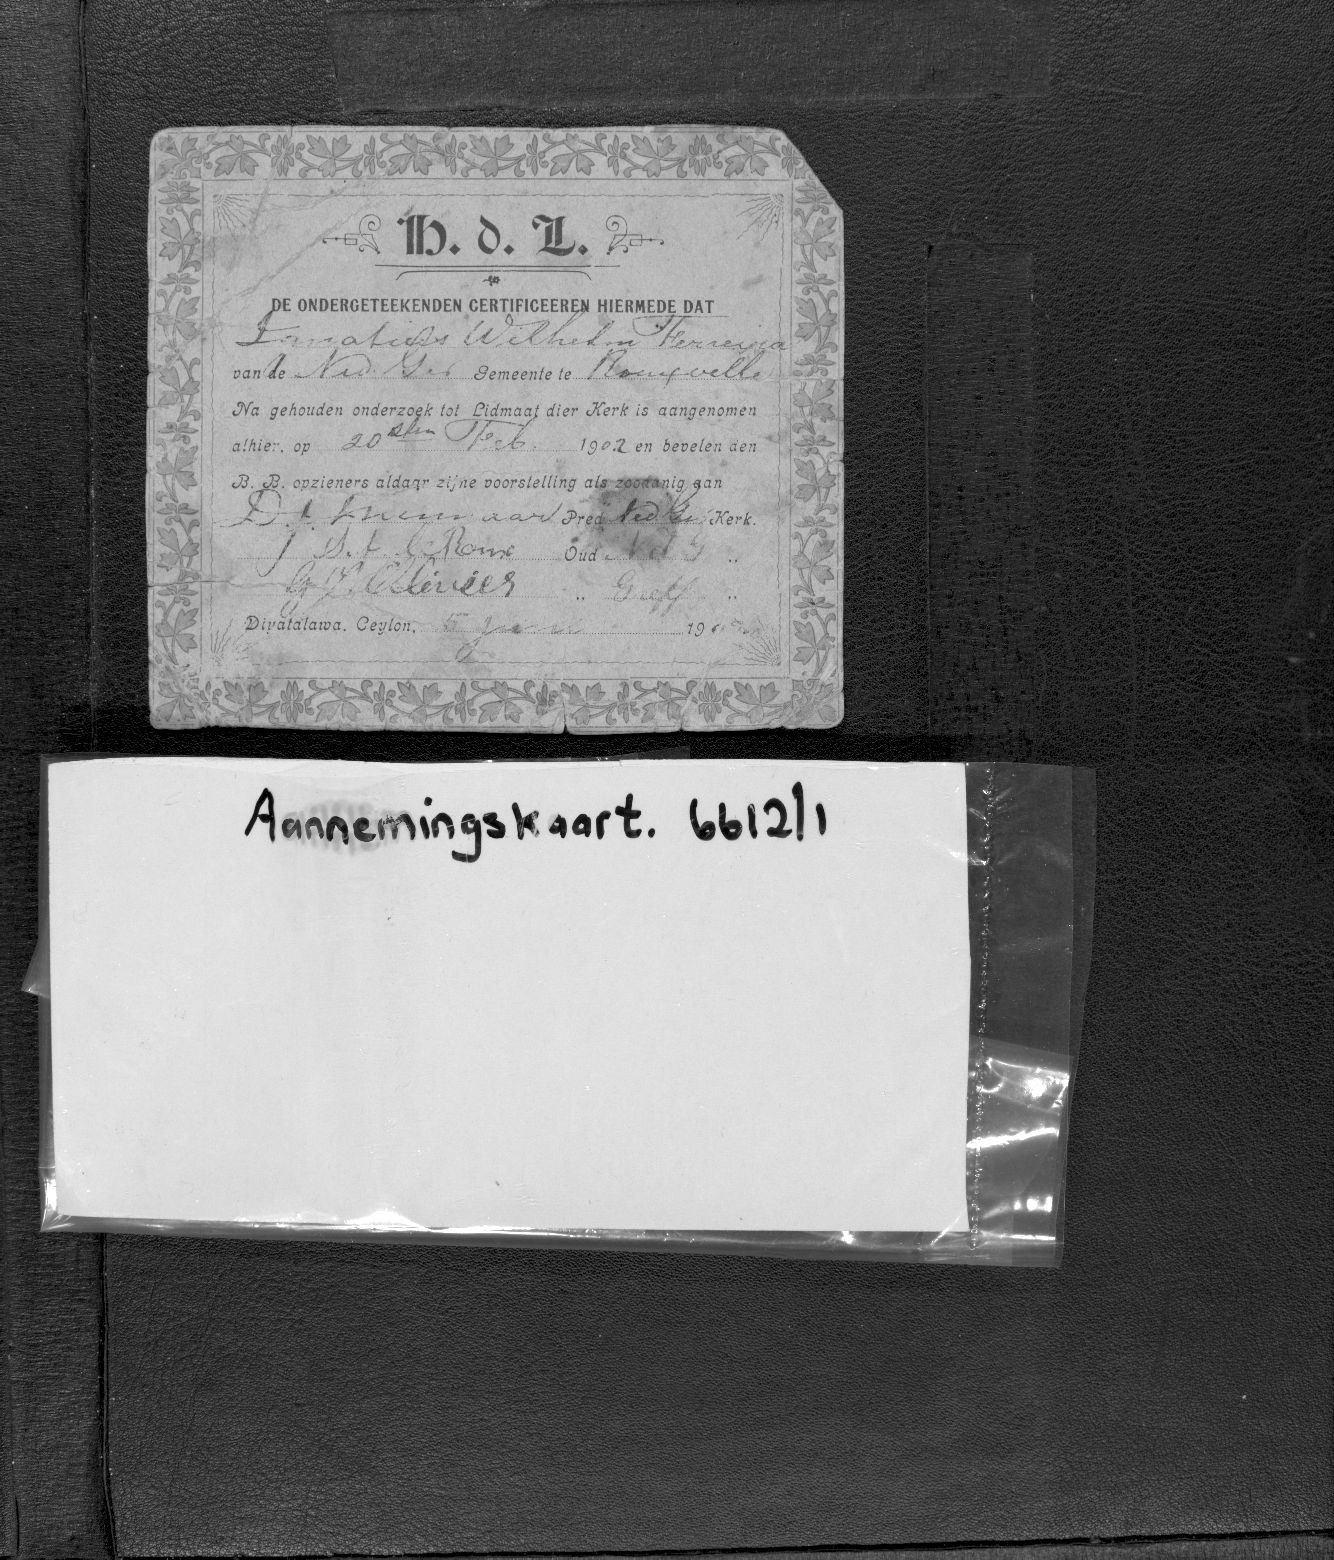 H. d. L.
DE ONDERGETEEKENDEN CERTIFICEEREN HIERMEDE DAT
Ignatius Wilhelm Ferreira
van de Ned. Ger Gemeente te Rouxville
Na gehouden onderzoek tot Lidmaat dier Kerk is aangenomen
alhier, op 20sten Feb. 1902 en bevelen den
B. B. opzieners aldaar zijne voorstelling als zoodanig aan
Pred Ned Ger Kerk.
le Roux Oud „
„ „
Diyatalawa, Ceylon, 5 Junie 190
Aannemingskaart. 6612/1